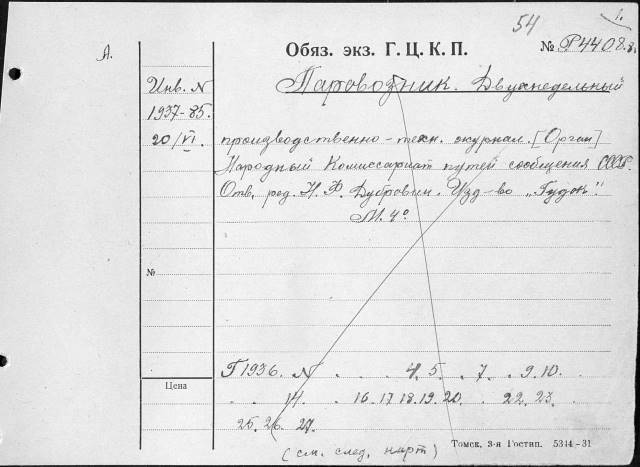 54
1.
А.
Обяз. экз. Г. Ц. К. П.
№ Р4408
Инв. N
1937-85.
20/VI.
Паровозник. Двухнедельный
производственно-техн. журнал. [Орган]
Народный Комиссариат путей сообщения СССР.
Отв. ред. Н. Ф. Дубровин. Изд-во „Гудок“.
М. 4°
№
Г 1936. N . . . 4. 5. . 7. . 9. 10.
Цена
. . 14. . 16. 17 18. 19. 20. . 22. 23. .
25. 26. 27.
(см. след. карт)
Томск, 3-я Гостип. 5344-31